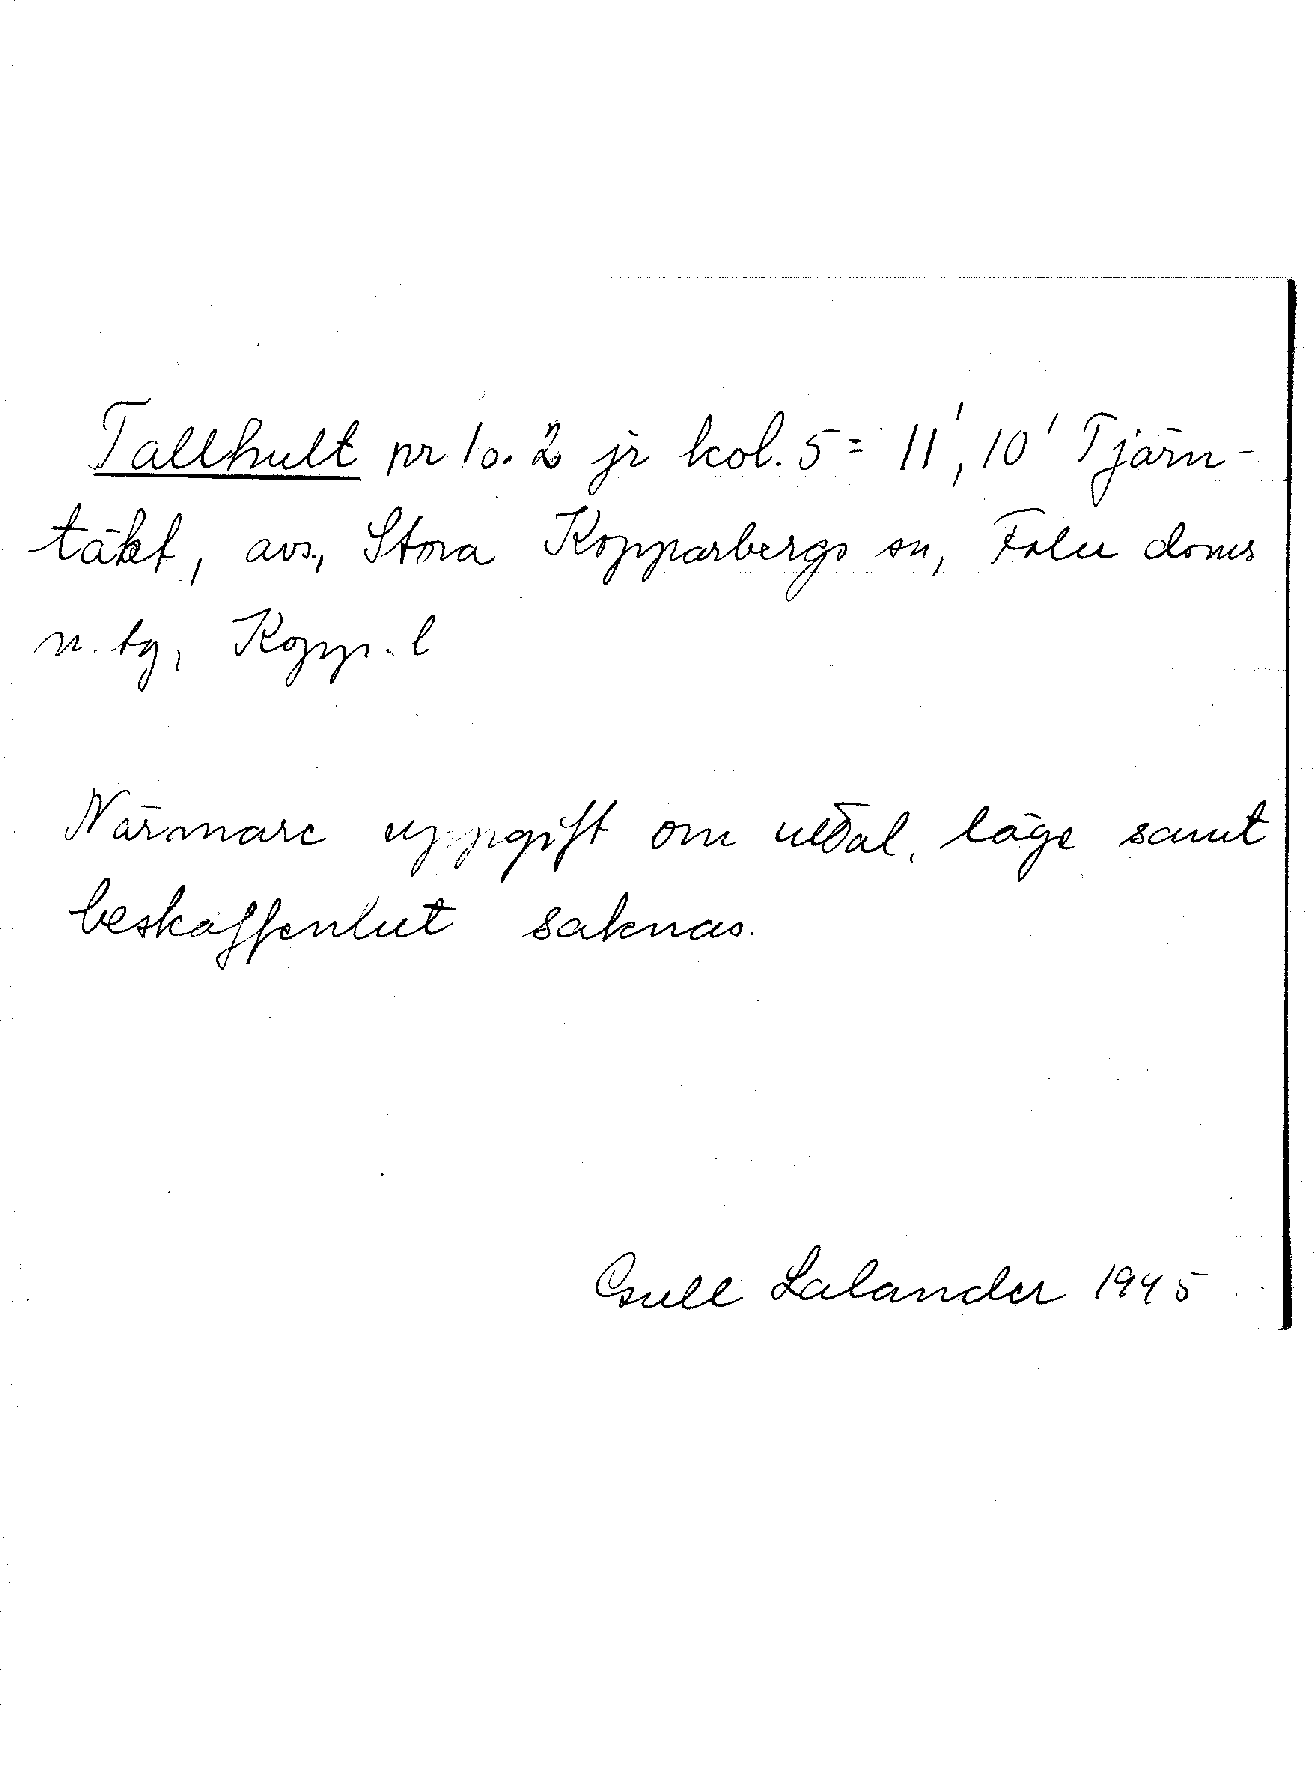 Tallhult nr 1 o. 2 jr kol. 5 = 11', 10' Tjärn-
täkt, avs., Stora Kopparbergs sn, Falu doms
n. tg, Kopp. l
Närmare uppgift om uttal, läge samt
beskaffenhet saknas.
Gull Lalander 1945